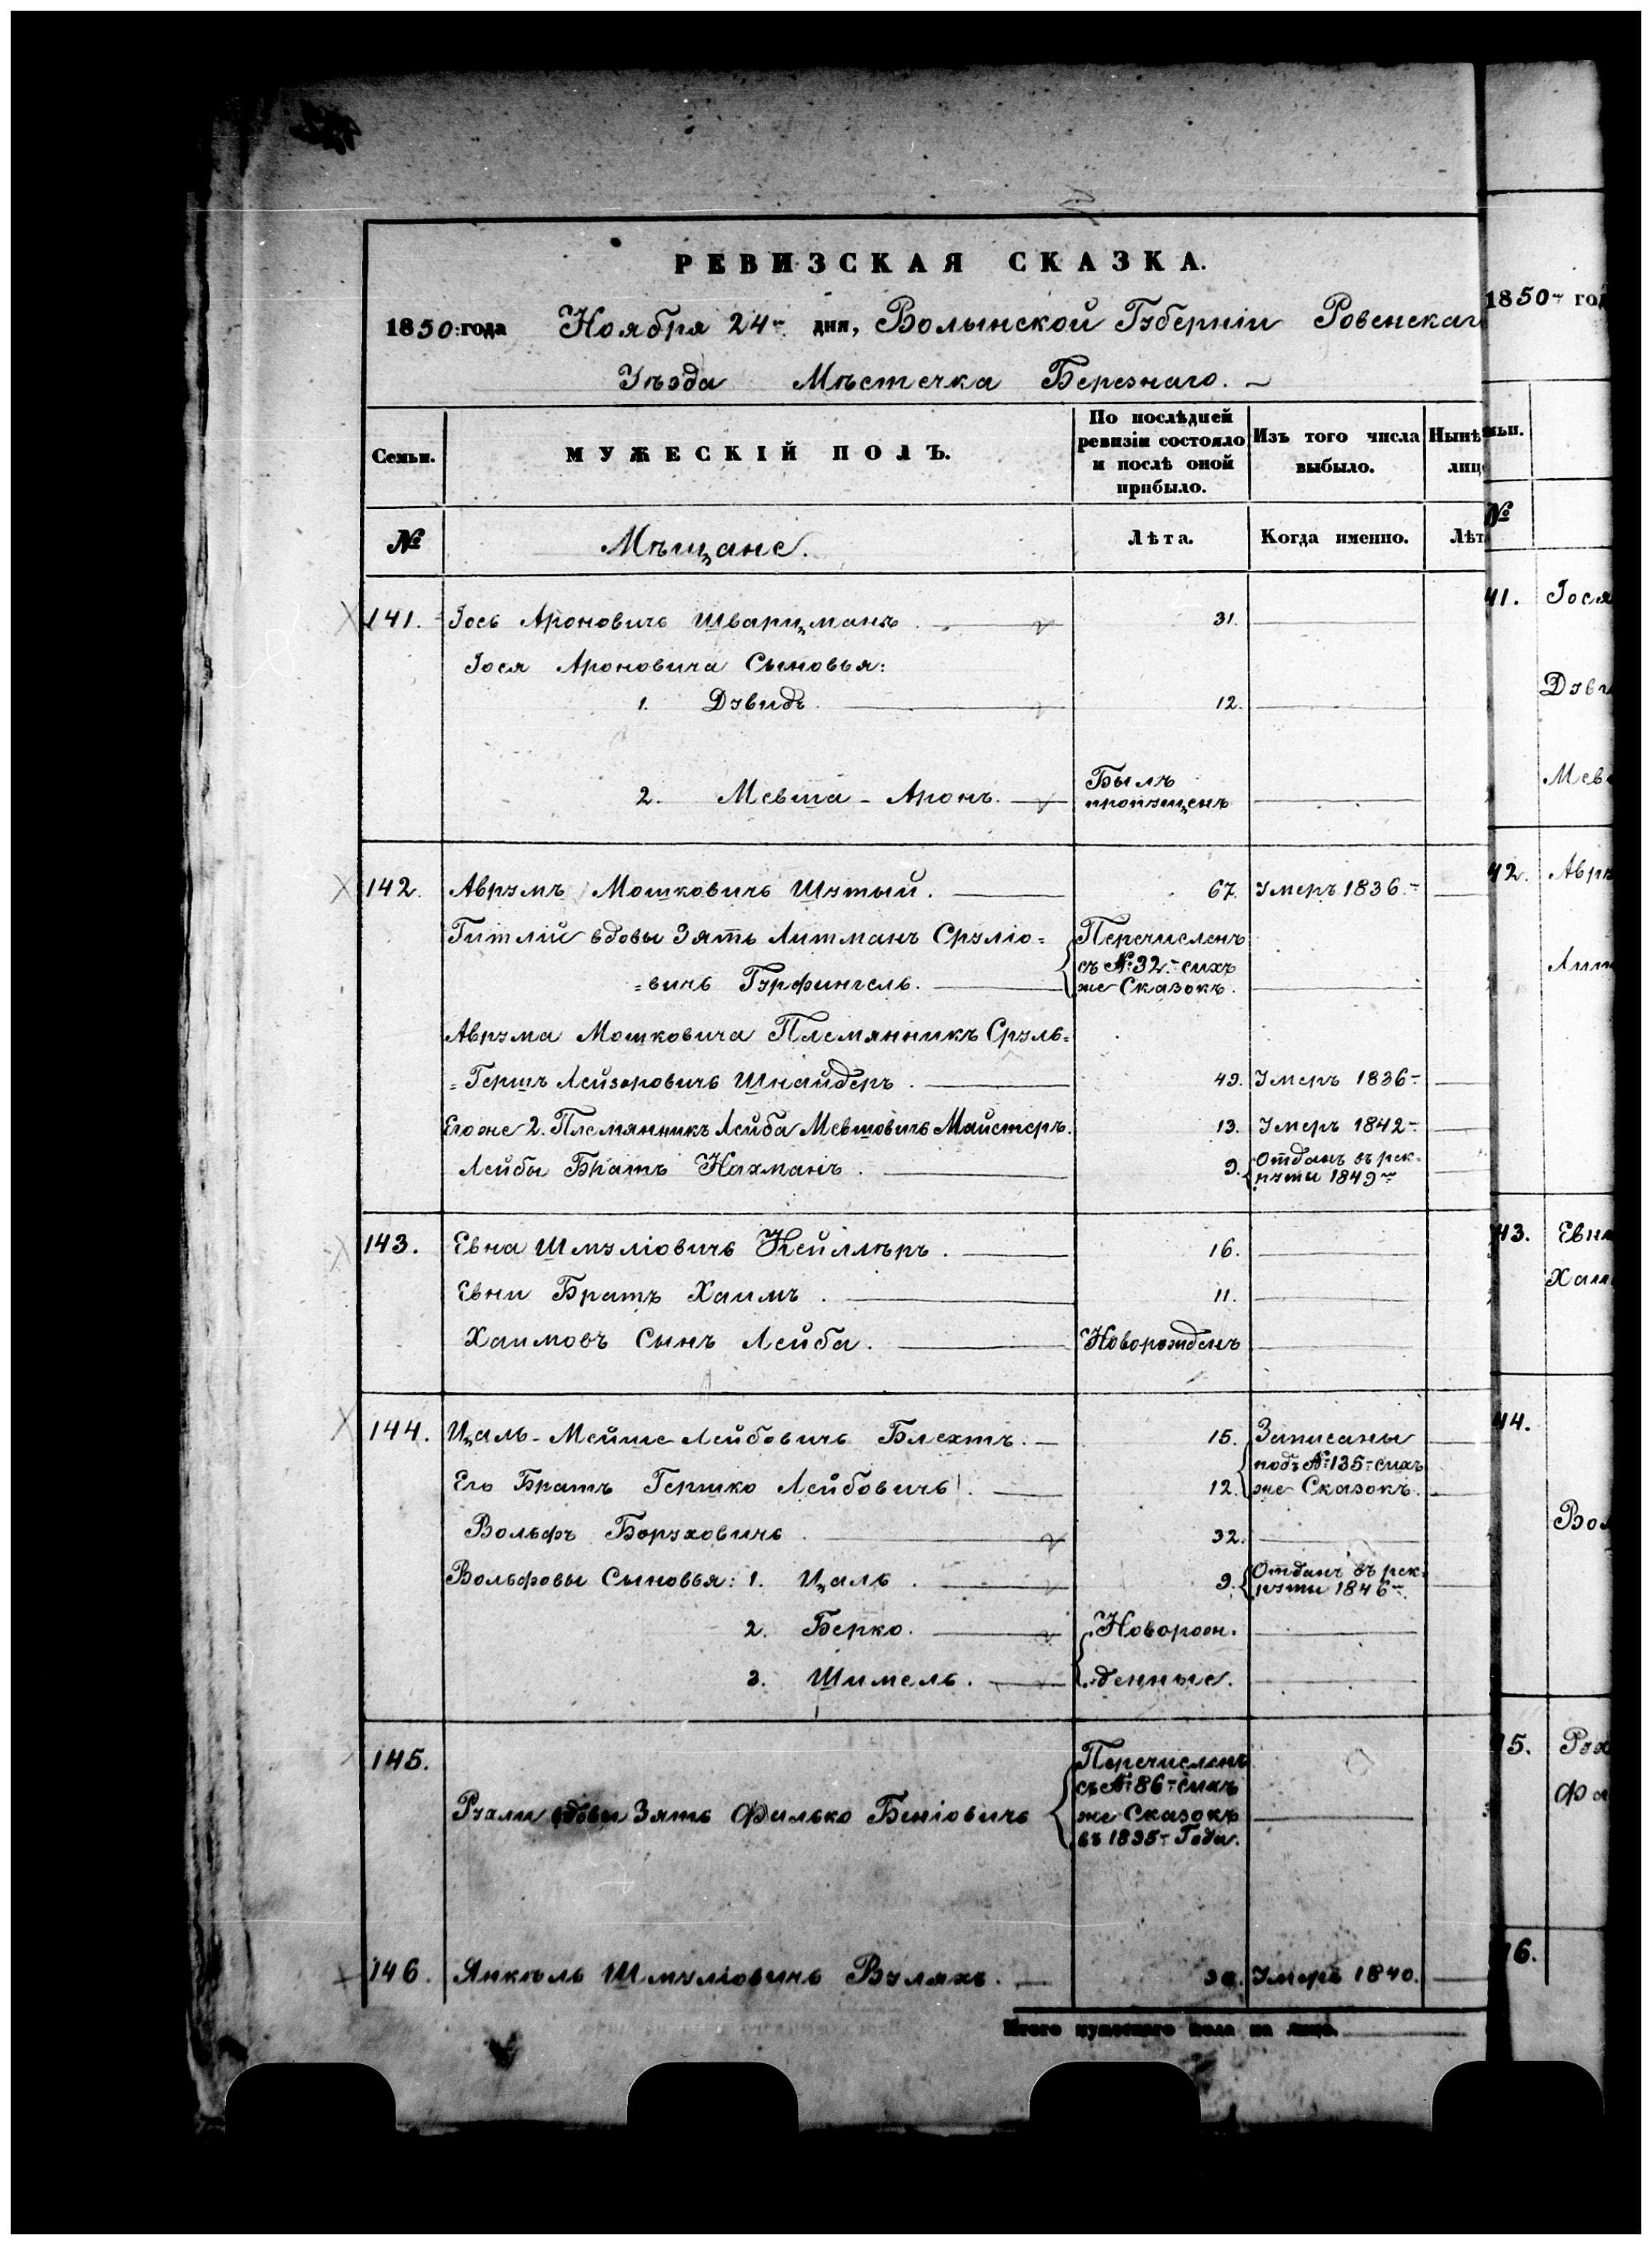 РЕВИЗСКАЯ СКАЗКА.
1850: года Ноября 24го дня, Волынской Губерніи Ровенскаг
Уѣзда Мѣстечка Березнаго.
Семьи.
МУЖЕСКІЙ ПОЛЪ.
По послѣдней ревизіи состояло и послѣ оной прибыло.
Изъ того числа выбыло.
Нынѣ лице
№
Мѣщане.
Лѣта.
Когда именно.
Лѣт
141. Іось Ароновичь Шварцманъ. 31.
Іося Ароновича Сыновья:
1. Дувидъ. 12.
2. Мевша-Аронъ. Былъ пропущенъ
142. Аврумъ Мошковичь Шутый. 67. Умеръ 1836.
Гитлій вдовы Зять Литманъ Сруліо=
=вичь Гурфингель. Перечисленъ съ №32. сихъ же Сказокъ.
Аврума Мошковича Племянникъ Сруль=
=Гершъ Лейзоровичь Шнайдеръ. 49. Умеръ 1836
Его же 2. Племянникъ Лейба Мевшовичь Майстеръ. 13. Умеръ 1842
Лейбы Братъ Нахманъ. 9. Отданъ въ рек=
руты 1849го
143. Евна Шмуліовичь Кейлмѣръ. 16.
Евни Братъ Хаимъ. 11.
Хаимовъ Сынъ Лейба. Новорожденъ
144. Цаль-Мейше Лейбовичь Блехтъ. 15. Записаны
подъ №135 сихъ
Его Братъ Гершко Лейбовичь. 12. же Сказокъ.
Вольфъ Боруховичь 32.
Вольфовы Сыновья: 1. Цаль. 9. Отданъ въ рек=
руты 1846
2. Берко. Новорож=
3. Шимель. денные.
145.
Рухли вдовы Зять Фалько Беніовичь Перечисленъ
съ №86 сихъ
же Сказокъ
въ 1835 Года.
146. Янкѣль Шмуліовичь Вуляхъ. Умеръ 1840.
Итого мужескаго пола на лицо.
1850 год
ьи.
№
41. Іося
Дуви
Мев
42. Авру
Лит
43. Евна
Хаим
44.
Вол
15. Рух
Фа
16.